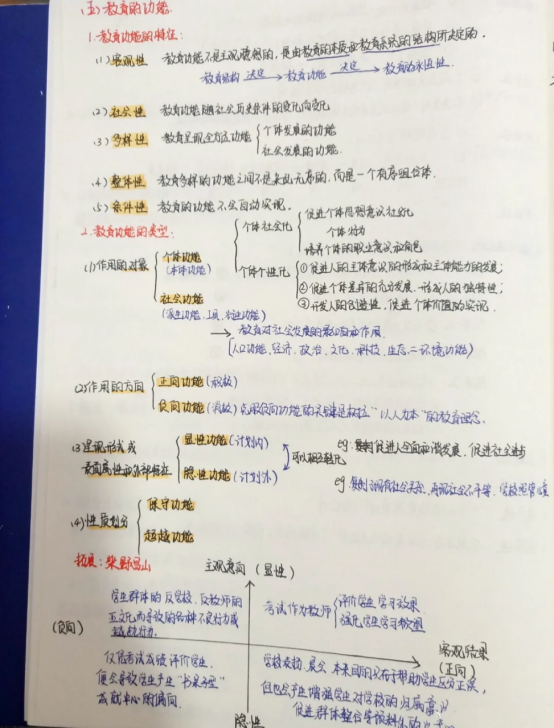 (五)教育的功能
1.教育功能的特征:
(1)客观性 教育功能不是主观臆想的,是由教育的本质和教育系统的结构所决定的。
教育结构 决定 教育功能 决定 教育的永恒性
(2)社会性 教育功能随社会历史条件的变化而变化
(3)多样性 教育呈现全方位功能 个体发展的功能
社会发展的功能
(4)整体性 教育多样的功能之间不是杂乱无序的,而是一个有序组合体.
(5)条件性 教育的功能不会自动实现。
2.教育功能的类型:
(1)作用的对象 个体功能
(本体功能)
个体社会化 促进个体思想意识社会化
个体行为
培养个体的职业意识和角色
个体个性化 ①促进人的主体意识的形成和主体能力的发展;
②促进个体差异的充分发展,形成人的独特性;
③开发人的创造性,促进个体价值的实现.
社会功能
(派生功能、工具、衍生功能)
教育对社会发展的影响和作用.
(人口功能、经济、政治、文化、科技、生态、环境功能)
(2)作用的方向 正向功能(积极)
负向功能(消极)克服负向功能的关键是树立"以人为本"的教育理念.
(3)呈现形式 显性功能(计划内) 可以相互转化 eg: 促进人全面和谐发展、促进社会进步
隐性功能(计划外) eg: 再现社会不平等、学校照管
(4)性质划分 保守功能
超越功能
拓展:柴野昌山
主观意向(显性)
学生群体的反学校、反教师的
亚文化而导致的各种不良行为或
考试作为教师 评价学生学习效果
强化学生学习动机
(负向)
客观结果
(正向)
仅凭考试成绩评价学生,
便会导致学生产生"书呆子"
成就中心的偏向.
学校表扬、 本来目的只在于帮助学生区分正误,
但也会产生增强学生对学校的归属意识
促进群体整合等
隐性